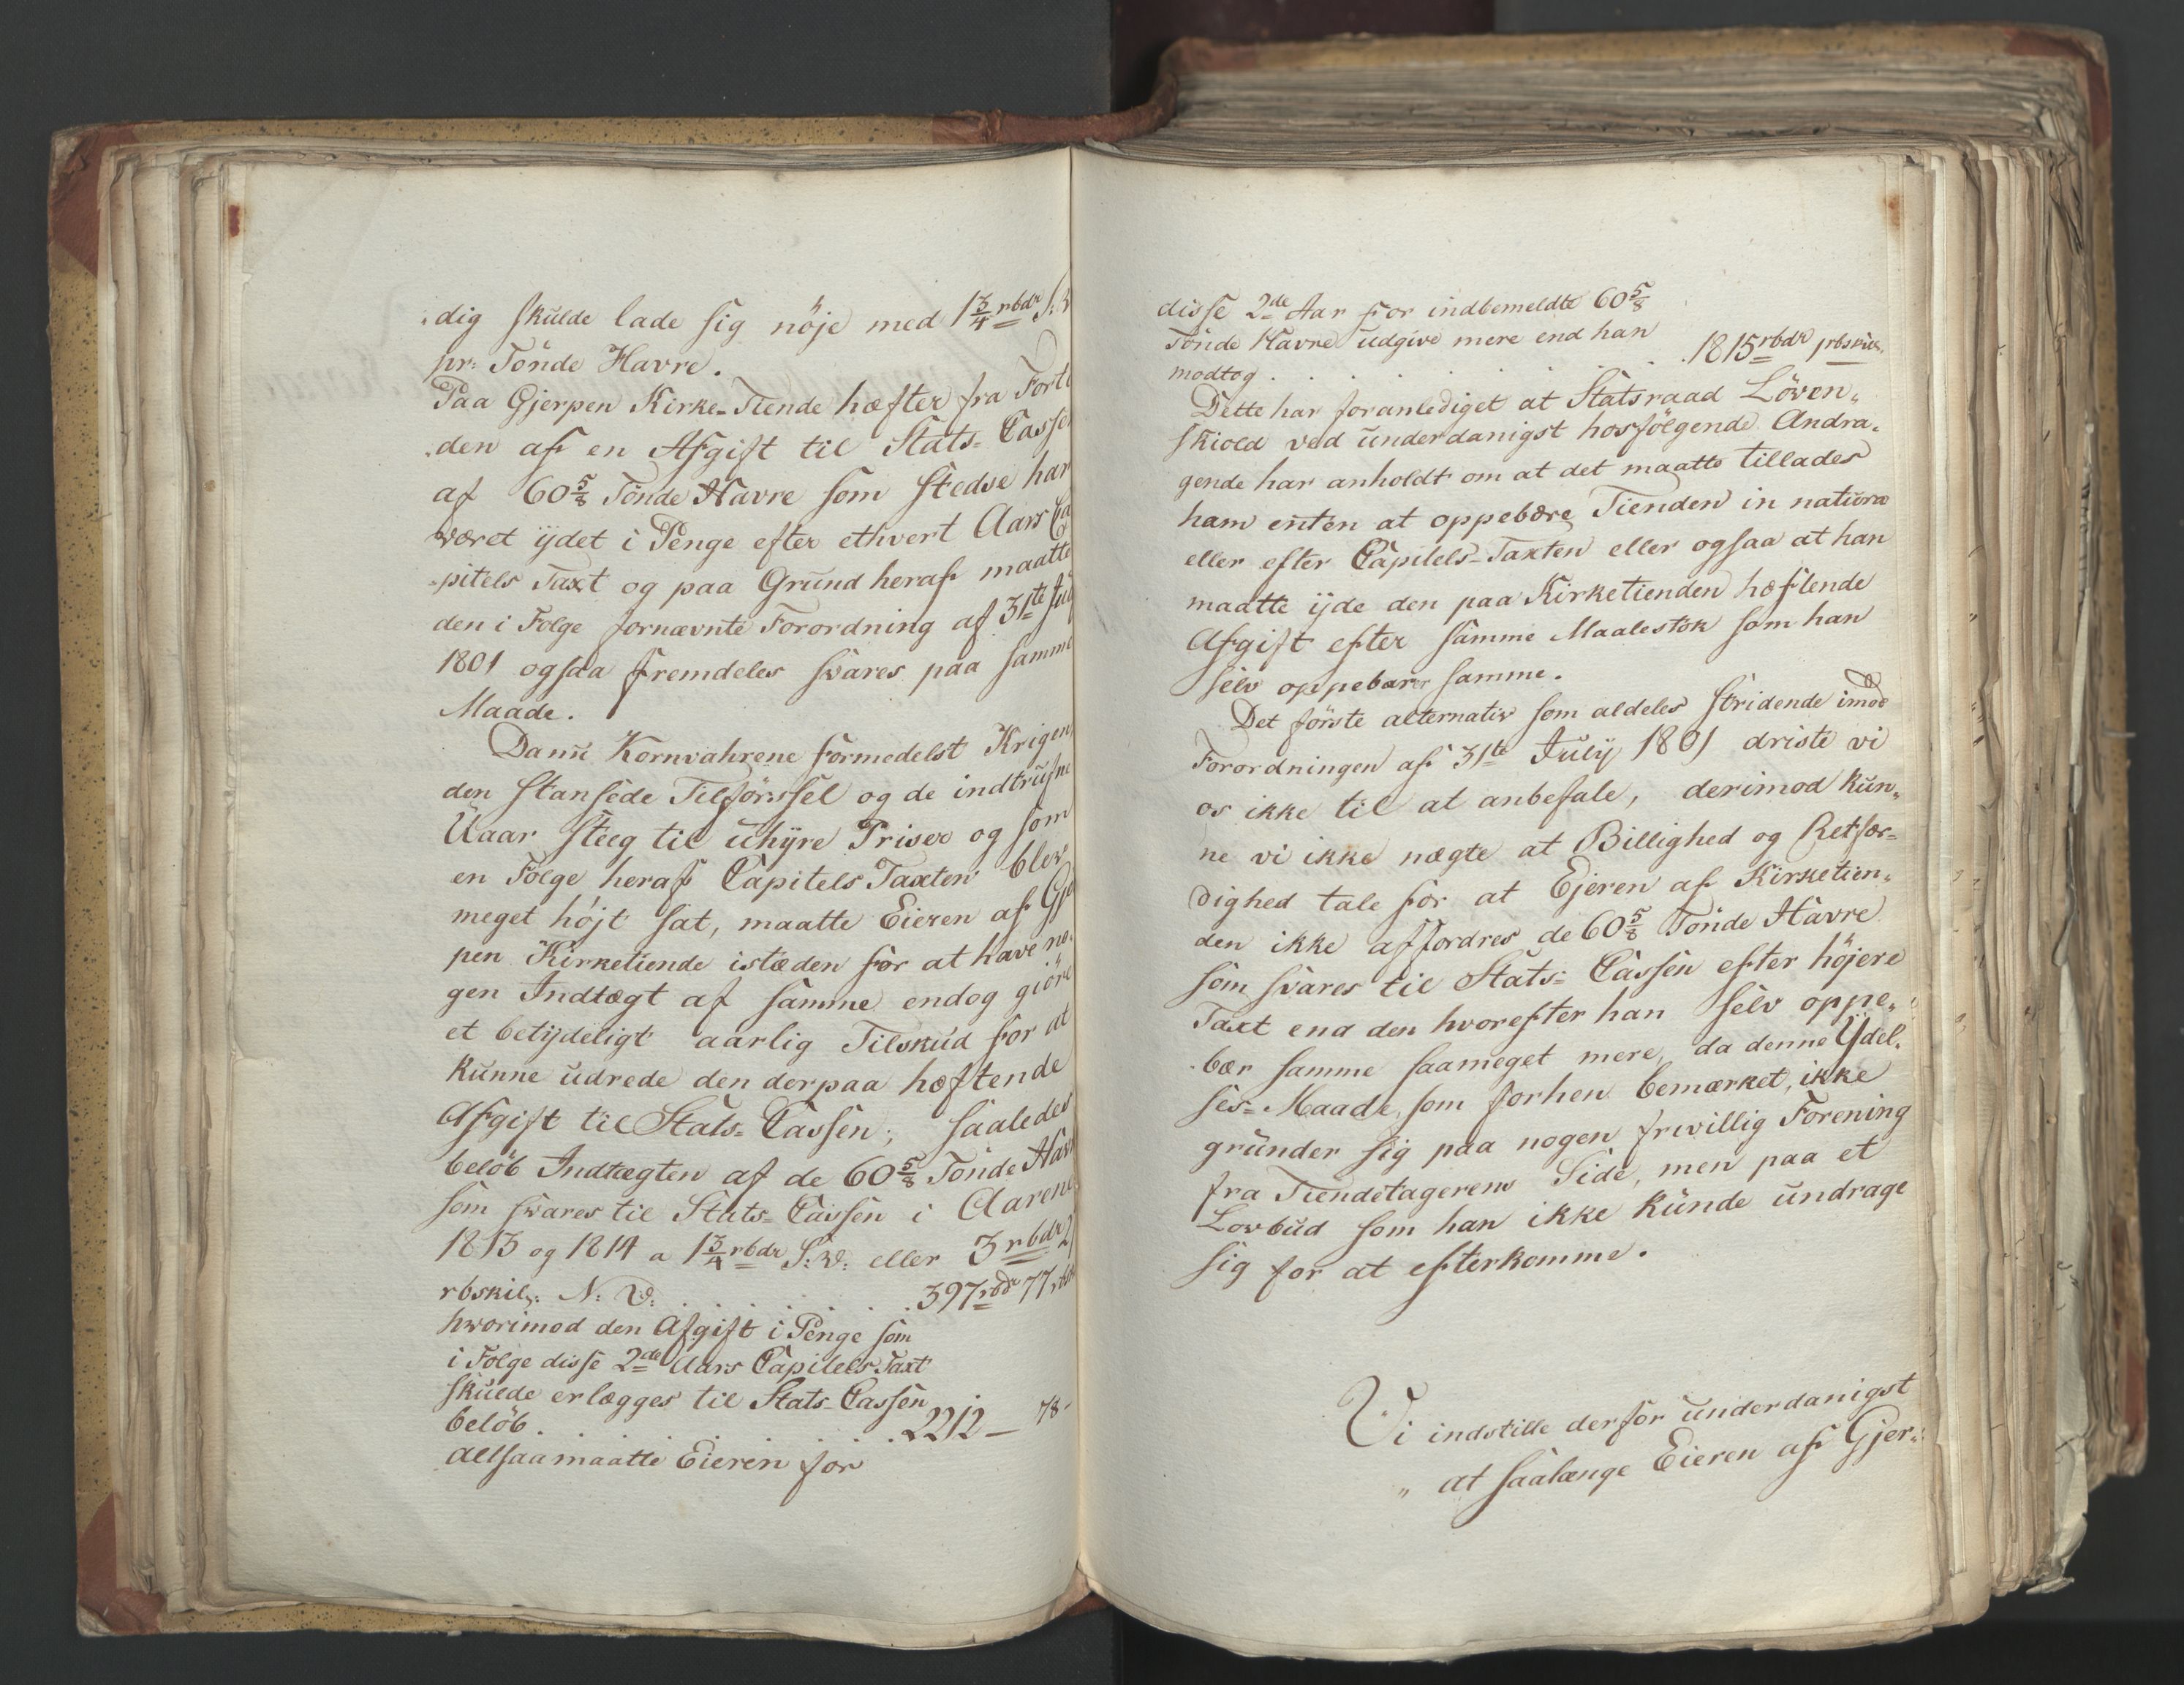 dig skulde lade sig nöje med 1 3/4 rbdr S: V
pr: Tönde Havre.
Paa Gjerpen Kirke-Tiende hæfter fra Forti
den af en Afgift til Stats-Cassen
af 60 5/8 Tönde Havre som stedse har
været ÿdet i Penge efter ethvert Aars Ca
pitels Taxt og paa Grund heraf maatte
den i Fölge fornævnte Forordning af 31te Jul
1801 ogsaa fremdeles svares paa samme
Maade.
Danu Kornvahrene formedelst Krigen,
den standsede Tilførssel og de indtrufne
Uaar steeg til uhÿre Priser og som
en Fölge heraf Capitels Taxten blev
meget höjt sat, maatte Eieren af Gje
pen Kirketiende istæden for at have no
gen Indtægt af samme endog giöre
et betÿdeligt aarlig Tilskud for at
kunne udrede den derpaa hæftende
Afgift til Stats-Cassen; saaledes
belöb Indtægten af de 60 5/8 Tönde Hav
som svares til Stats-Cassen i Aarene
1813 og 1814 a 1 3/4 rbdr S: V: eller 3 rbdr 2
rbskil: N: V: . . . . . 397 rbdr 77 rbs
hvorimod den Afgift i Penge som
i Fölge disse 2de Aars Capitels Taxt
skulde erlægges til Stats-Cassen
belöb . . . . . 2212 – 78-
altsaa maatte Eieren for
disse 2de Aar for indbemeldte 60 5/8
Tönde Havre udgive mere end han
modtog . . . . . . . 1815 rbdr 1 rbskil.
Dette har foranlediget at Statsraad Löven-
skiold ved underdanigst hosfölgende Andra-
gende har anholdt om at det maatte tillades
ham enten at oppebære Tienden in natura
eller efter Capitels-Taxten eller ogsaa at han
maatte ÿde den paa Kirketienden hæftende
Afgift efter samme Maalestok som han
selv oppebærer samme.
Det förste alternativ som aldeles stridende imod
Forordningen af 31te Julÿ 1801 driste vi
os ikke til at anbefale, derimod kun-
ne vi ikke nægte at Billighed og Retfær-
dighed tale for at Ejeren af Kirketien-
den ikke affordres de 60 5/8 Tönde Havre
som svares til Stats-Cassen efter höjere
Taxt end den hvorefter han selv oppe-
bær samme saameget mere, da denne Ydel-
ses-Maade, som forhen bemærket, ikke
grunder sig paa nogen frivillig Forening
fra Tiendetagerens Side, men paa et
Lovbud som han ikke kunde undrage
sig for at efterkomme.
Vi indstille derfor underdanigst
" at saalænge Eieren af Gjer-